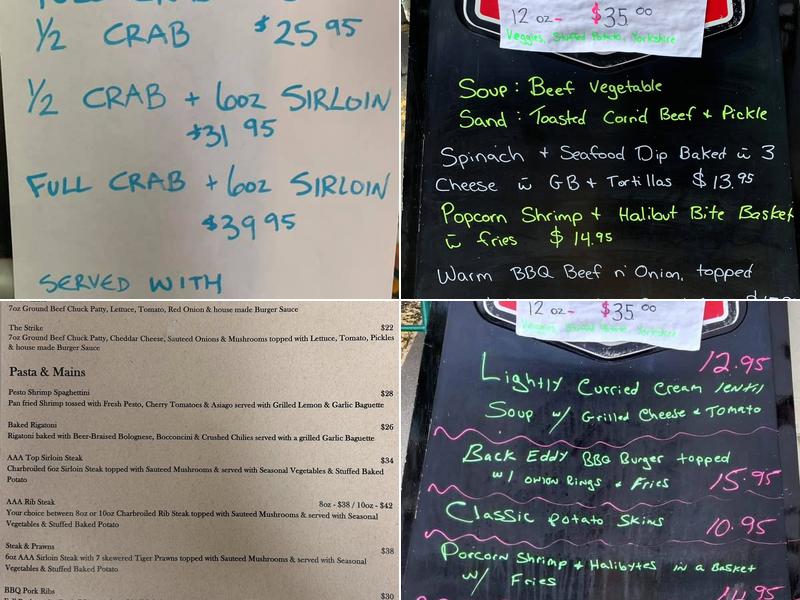 ½ CRAB $25.95
½ CRAB + 6oz SIRLOIN
$31.95
FULL CRAB + 6oz SIRLOIN
$39.95
SERVED WITH
12 oz - $35.00
Veggies, Stuffed Potato, Yorkshire
Soup: Beef Vegetable
Sand: Toasted Corn'd Beef + Pickle
Spinach + Seafood Dip Baked w 3
Cheese w GB + Tortillas $13.95
Popcorn Shrimp + Halibut Bite Basket
w fries $14.95
Warm BBQ Beef n' Onion, topped
7oz Ground Beef Chuck Patty, Lettuce, Tomato, Red Onion & house made Burger Sauce
The Strike $22
7oz Ground Beef Chuck Patty, Cheddar Cheese, Sauteed Onions & Mushrooms topped with Lettuce, Tomato, Pickles
& house made Burger Sauce
Pasta & Mains
Pesto Shrimp Spaghettini $28
Pan fried Shrimp tossed with Fresh Pesto, Cherry Tomatoes & Asiago served with Grilled Lemon & Garlic Baguette
Baked Rigatoni $26
Rigatoni baked with Beer-Braised Bolognese, Bocconcini & Crushed Chilies served with a grilled Garlic Baguette
AAA Top Sirloin Steak $34
Charbroiled 6oz Sirloin Steak topped with Sauteed Mushrooms & served with Seasonal Vegetables & Stuffed Baked
Potato
AAA Rib Steak 8oz - $38 / 10oz - $42
Your choice between 8oz or 10oz Charbroiled Rib Steak topped with Sauteed Mushrooms & served with Seasonal
Vegetables & Stuffed Baked Potato
Steak & Prawns $38
6oz AAA Sirloin Steak with 7 skewered Tiger Prawns topped with Sauteed Mushrooms & served with Seasonal
Vegetables & Stuffed Baked Potato
BBQ Pork Ribs $30
12 oz - $35.00
Veggies, Stuffed Potato, Yorkshire
12.95
Lightly Curried Cream lentil
Soup w/ Grilled Cheese & Tomato
Back Eddy BBQ Burger topped
w/ onion Rings & Fries 15.95
Classic Potato Skins 10.95
Porcorn Shrimp & Halibytes in a Basket
w/ Fries